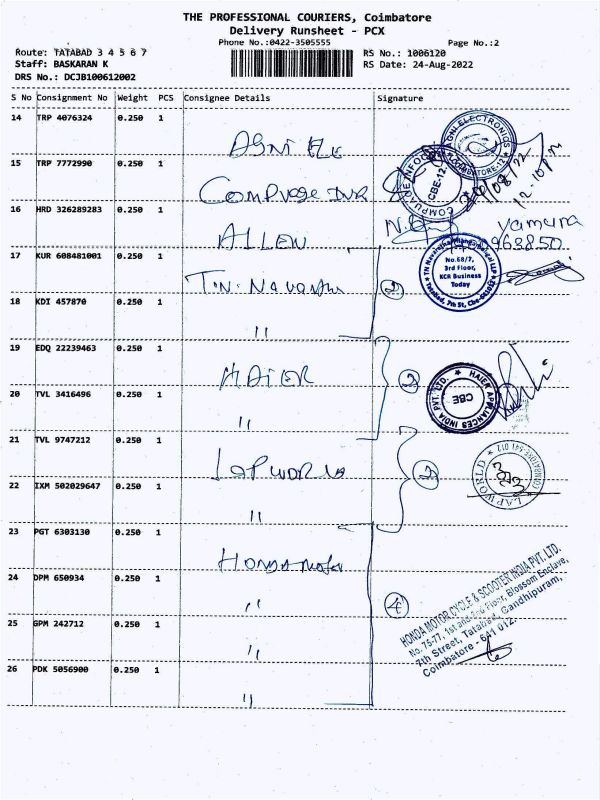 THE PROFESSIONAL COURIERS, Coimbatore
Delivery Runsheet - PCX
Phone No.:0422-3505555
Page No.:2
Route: TATABAD 3 4 5 6 7
RS No.: 1006120
Staff: BASKARAN K
RS Date: 24-Aug-2022
DRS No.: DCJB100612002
S No Consignment No Weight PCS Consignee Details Signature
14 TRP 4076324 0.250 1
AGNI ELE
AGNI ELECTRONICS
COIMBATORE-12
15 TRP 7772990 0.250 1
COMPUAGE INFO
COMPUAGE INFO
CBE-12
12-10pm
16 HRD 326289283 0.250 1
ALLEN
yamuna
963850
17 KUR 608481001 0.250 1
T.N. Navarathna
2
No.68/7,
3rd Floor,
KCR Business
Today
Tatabad, 7th St, Cbe-641012
18 KDI 457870 0.250 1
"
19 EDQ 22239463 0.250 1
HAIER
2
HAIER APPLIANCES INDIA PVT. LTD.
CBE
20 TVL 3416496 0.250 1
"
21 TVL 9747212 0.250 1
LAP WORLD
2
LAP WORLD
22 IXM 502029647 0.250 1
"
23 PGT 6303130 0.250 1
Honda Motor
24 DPM 650934 0.250 1
"
4
HONDA MOTOR CYCLE & SCOOTER INDIA PVT. LTD.
No. 75-77, 1st and 2nd Floor, Blossom Enclave,
7th Street, Tatabad, Gandhipuram,
Coimbatore - 641 012.
25 GPM 242712 0.250 1
"
26 PDK 5056900 0.250 1
"